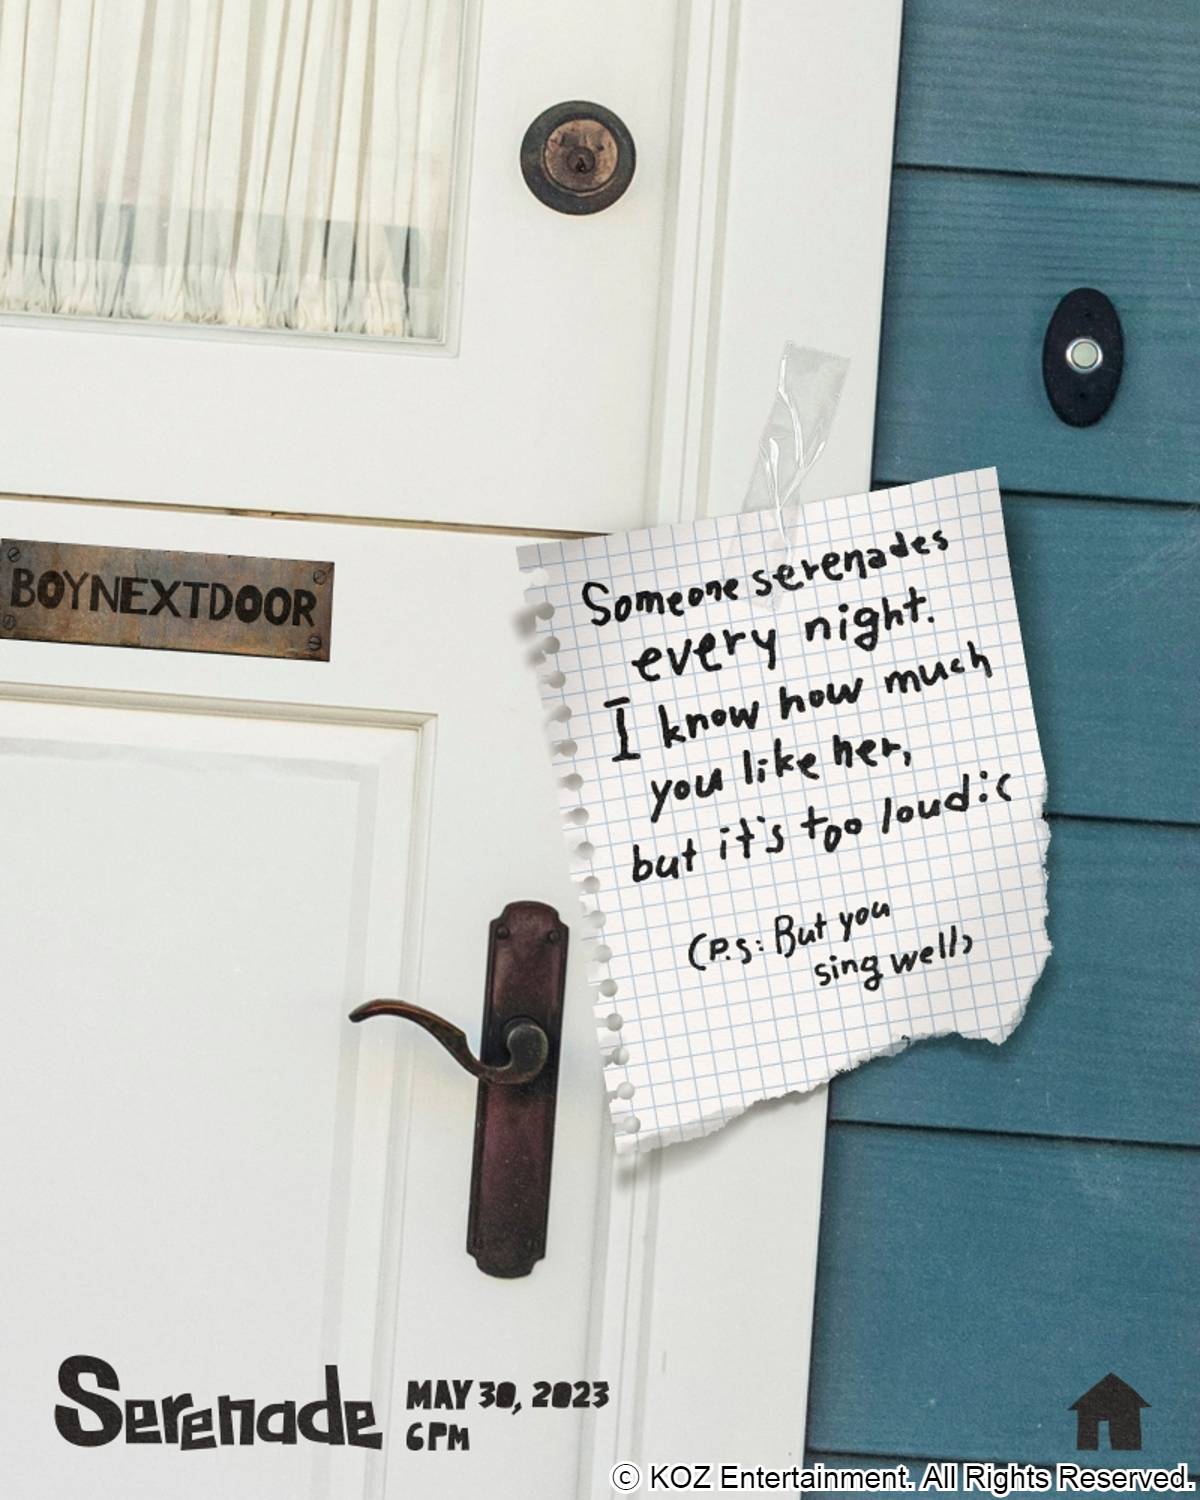 BOYNEXTDOOR
Someone serenades
every night.
I know how much
you like her,
but it's too loud :(
(P.S: But you
sing well)
Serenade
MAY 30, 2023
6PM
© KOZ Entertainment. All Rights Reserved.